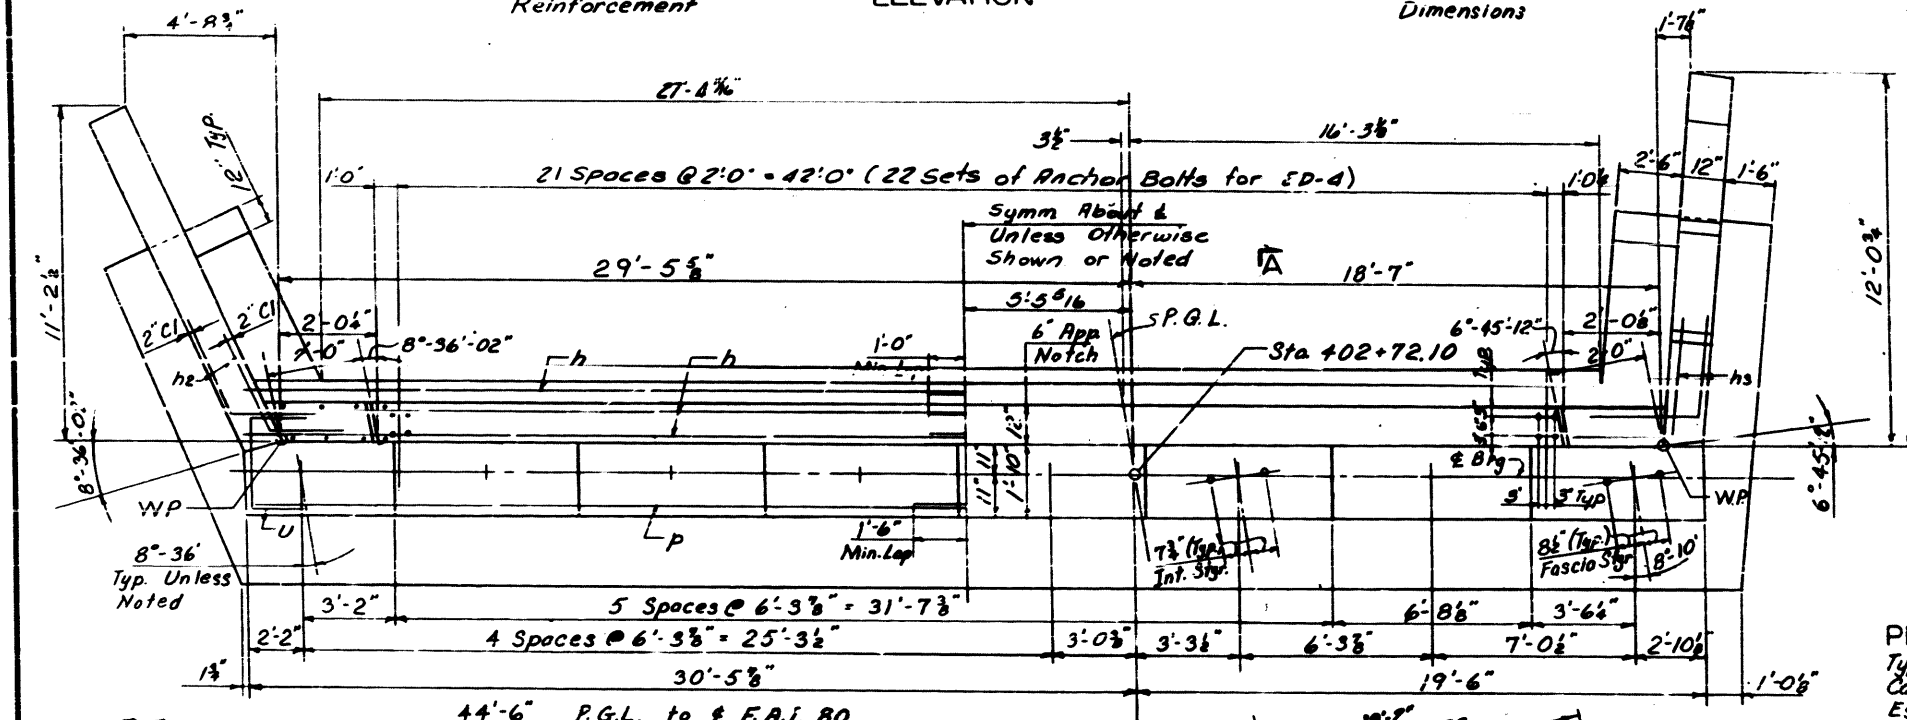 Reinforcement
ELEVATION
Dimensions
4'-8¾"
1'-7⅛"
27'-4 11/16"
3½"
16'-3⅛"
12" Typ.
1'-0"
21 Spaces @ 2'-0" = 42'-0" (22 Sets of Anchor Bolts for ED-4)
1'-0"
2'-6"
12"
1'-6"
Symm About ℄
Unless Otherwise
Shown or Noted
A
11'-2½"
29'-5⅝"
18'-7"
12'-0¾"
5'-5 5/16
2" Cl
2" Cl
2'-0¼"
8°-36'-02"
6" App.
Notch
P.G.L.
6°-45'-12"
2'-0⅛"
2'-0"
2'-0"
Typ
1'-0"
Min. Lap
h
h
Sta. 402+72.10
h2
h3
12"
8°-36'-02"
11"
11"
1'-10"
℄ Brg
3"
3" Typ
W.P.
W.P.
U
p
1'-6"
Min. Lap
7¾" (Typ.)
Int. Stgr.
8½" (Typ.)
Fascia Stgr.
8°-10'
8°-36'
Typ. Unless
Noted
3'-2"
5 Spaces @ 6'-3⅞" = 31'-7⅜"
6'-8⅛"
3'-6¼"
2'-2"
4 Spaces @ 6'-3⅞" = 25'-3½"
3'-0⅜"
3'-3½"
6'-3⅞"
7'-0½"
2'-10½"
1¾"
30'-5⅞"
19'-6"
1'-0⅛"
44'-6" P.G.L. to ℄ F.A.I. 80